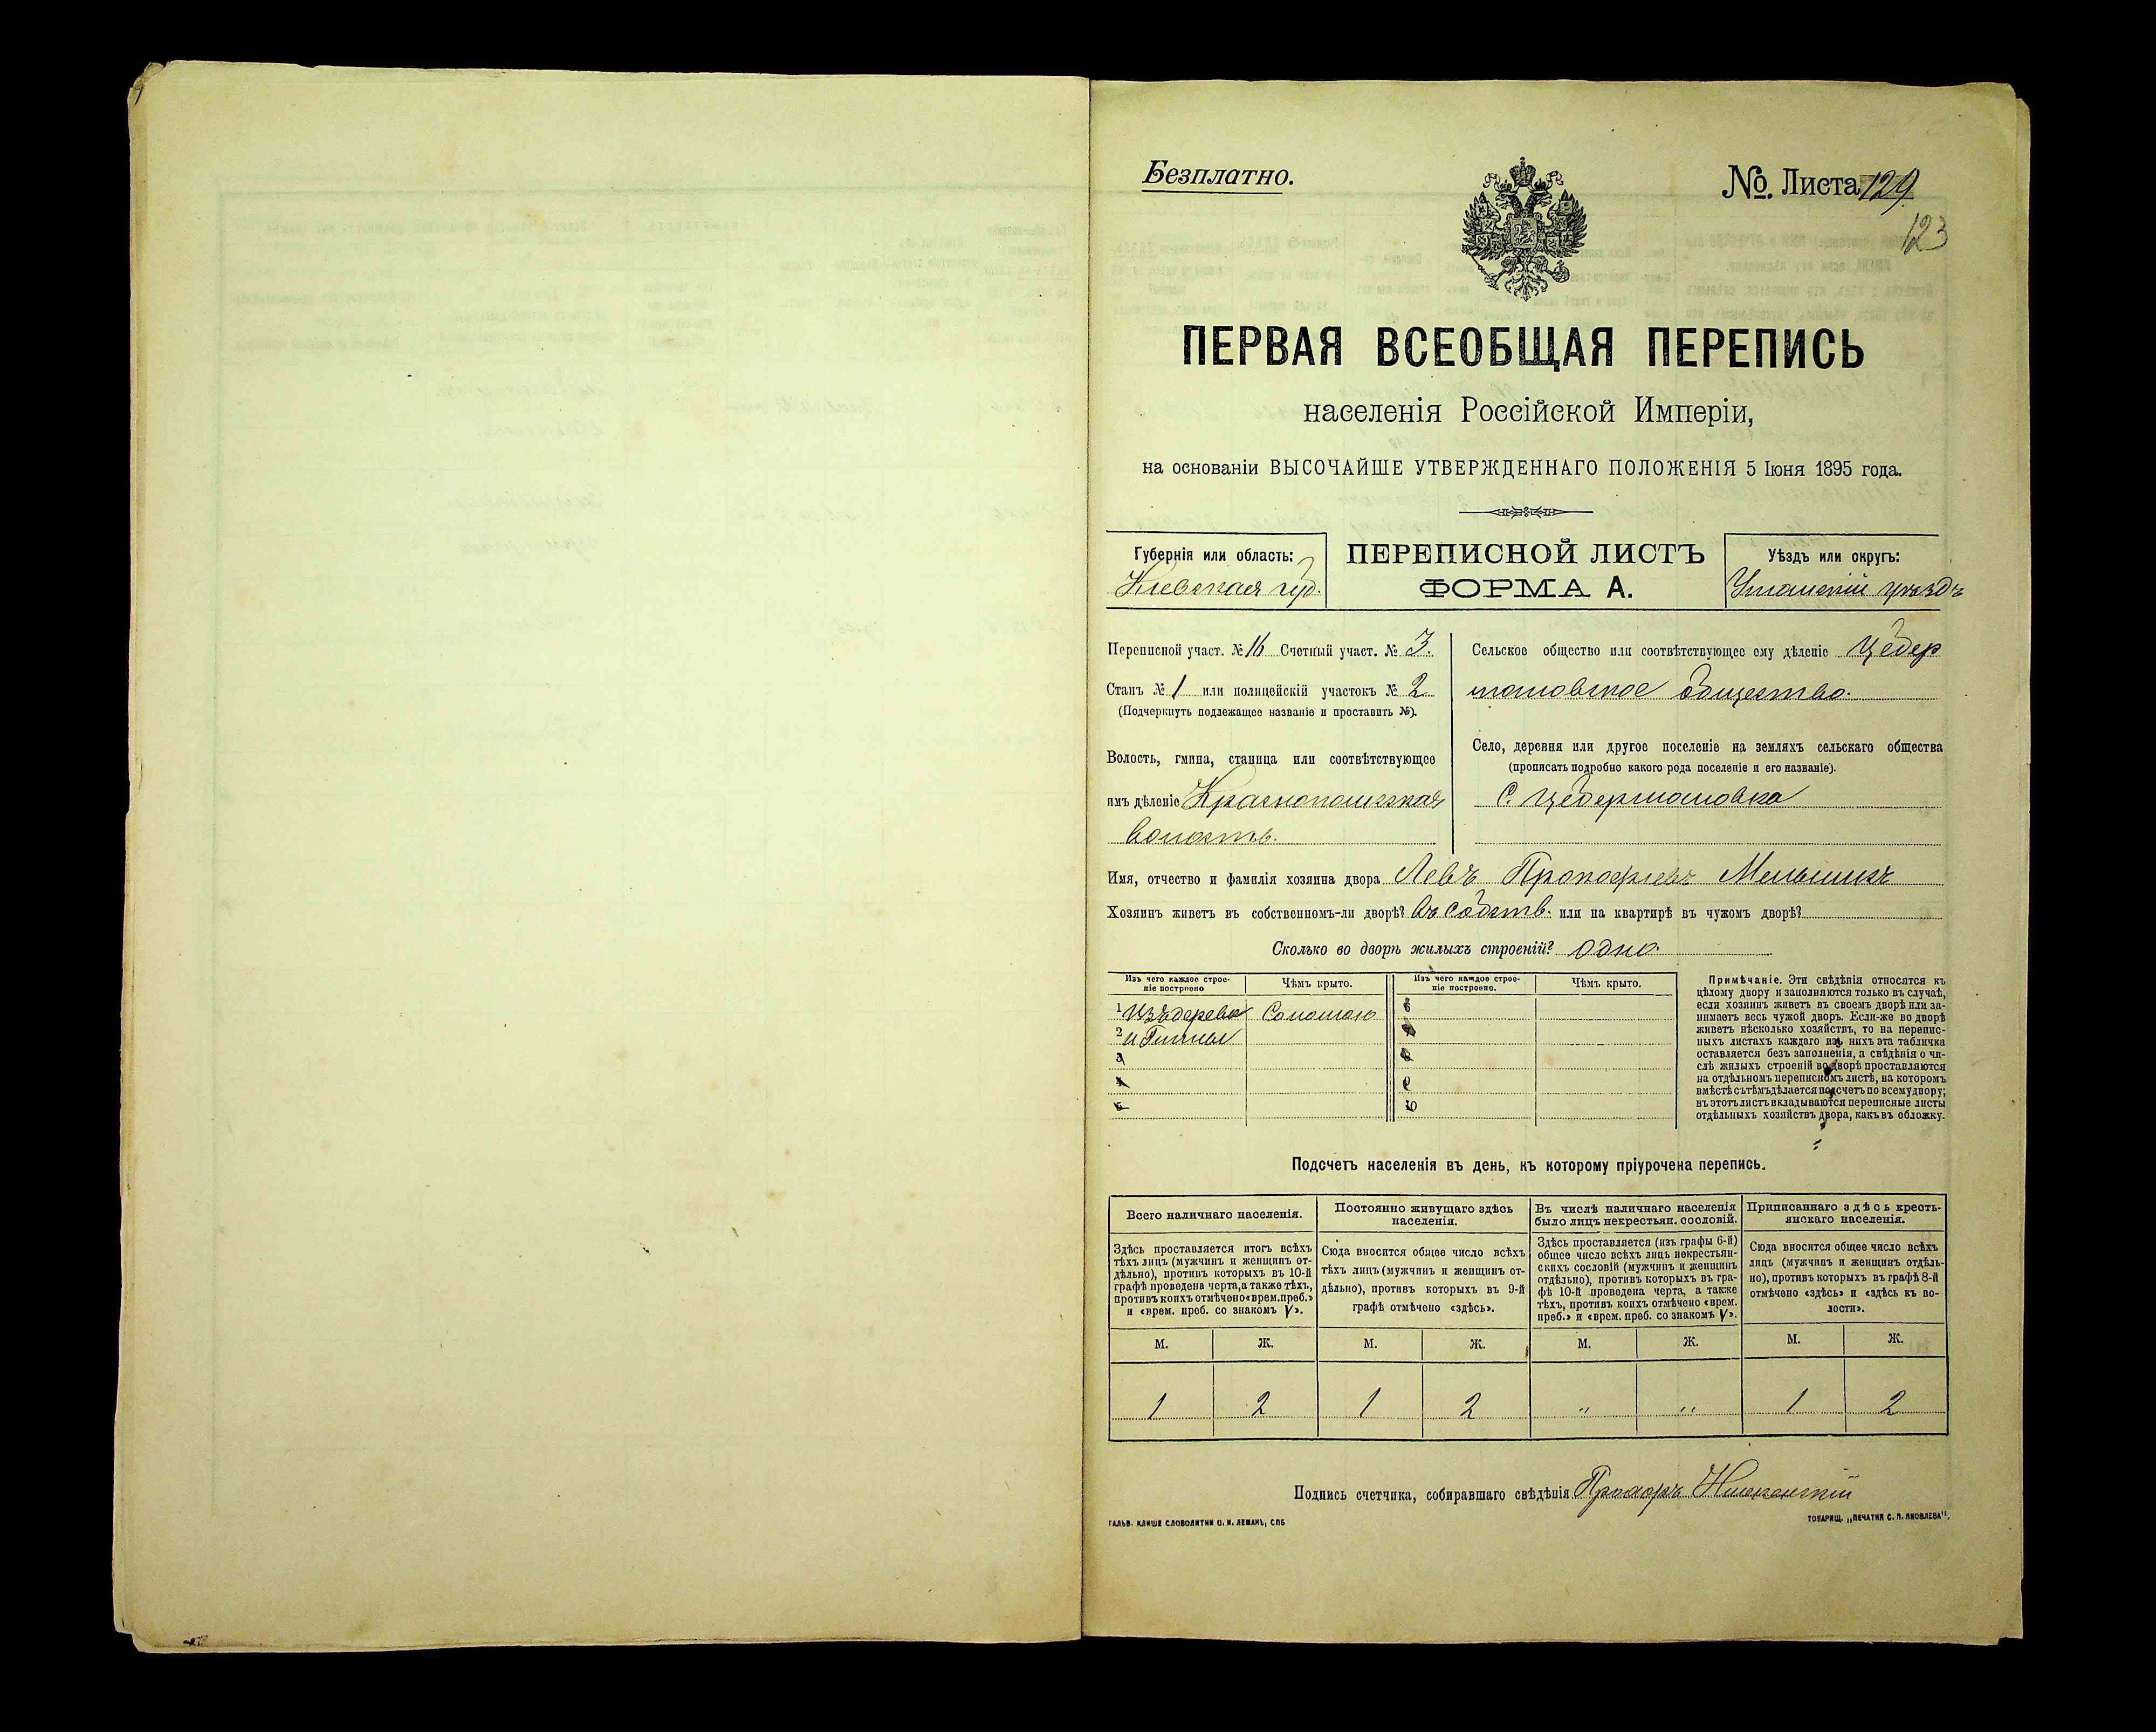 Безплатно.
№. Листа 129.
123
ПЕРВАЯ ВСЕОБЩАЯ ПЕРЕПИСЬ
населенія Россійской Имперіи,
на основаніи ВЫСОЧАЙШЕ УТВЕРЖДЕННАГО ПОЛОЖЕНІЯ 5 Іюня 1895 года.
Губернія или область:
Кіевская губ.
ПЕРЕПИСНОЙ ЛИСТЪ
ФОРМА А.
Уѣздъ или округъ:
Уманскій уѣздъ
Переписной участ. № 16 Счетный участ. № 3.
Станъ № 1 или полицейскій участокъ № 2
(Подчеркнуть подлежащее названіе и проставить №).
Волость, гмина, станица или соотвѣтствующее
имъ дѣленіе Краснопольская
волость.
Сельское общество или соотвѣтствующее ему дѣленіе Цебер
мановское общество.
Село, деревня или другое поселеніе на земляхъ сельскаго общества
(прописать подробно какого рода поселеніе и его названіе).
С. Цебермановка
Имя, отчество и фамилія хозяина двора Левъ Прокофіевъ Мельникъ
Хозяинъ живетъ въ собственномъ-ли дворѣ? Въ собств. или на квартирѣ въ чужомъ дворѣ?
Сколько во дворѣ жилыхъ строеній? одно.
Изъ чего каждое строе-
ніе построено
Чѣмъ крыто.
Изъ чего каждое строе-
ніе построено.
Чѣмъ крыто.
1 Изъ дерева Соломою 6
2 и Глины
3
4
5
10
Примѣчаніе. Эти свѣдѣнія относятся къ
цѣлому двору и заполняются только въ случаѣ,
если хозяинъ живетъ въ своемъ дворѣ или за-
нимаетъ весь чужой дворъ. Если-же во дворѣ
живетъ нѣсколько хозяйствъ, то на перепис-
ныхъ листахъ каждаго изъ нихъ эта табличка
оставляется безъ заполненія, а свѣдѣнія о чи-
слѣ жилыхъ строеній во дворѣ проставляются
на отдѣльномъ переписномъ листѣ, на которомъ
вмѣстѣ съ тѣмъ дѣлается подсчетъ по всему двору;
въ этотъ листъ вкладываются переписные листы
отдѣльныхъ хозяйствъ двора, какъ въ обложку.
Подсчетъ населенія въ день, къ которому пріурочена перепись.
Всего наличнаго населенія.
Постоянно живущаго здѣсь
населенія.
Въ числѣ наличнаго населенія
было лицъ некрестьян. сословій.
Приписаннаго здѣсь кресть-
янскаго населенія.
Здѣсь проставляется итогъ всѣхъ
тѣхъ лицъ (мужчинъ и женщинъ от-
дѣльно), противъ которыхъ въ 10-й
графѣ проведена черта, а также тѣхъ,
противъ коихъ отмѣчено «врем. преб.»
и «врем. преб. со знакомъ V».
Сюда вносится общее число всѣхъ
тѣхъ лицъ (мужчинъ и женщинъ от-
дѣльно), противъ которыхъ въ 9-й
графѣ отмѣчено «здѣсь».
Здѣсь проставляется (изъ графы 6-й)
общее число всѣхъ лицъ некрестьян-
скихъ сословій (мужчинъ и женщинъ
отдѣльно), противъ которыхъ въ гра-
фѣ 10-й проведена черта, а также
тѣхъ, противъ коихъ отмѣчено «врем.
преб.» и «врем. преб. со знакомъ V».
Сюда вносится общее число всѣхъ
лицъ (мужчинъ и женщинъ отдѣль-
но), противъ которыхъ въ графѣ 8-й
отмѣчено «здѣсь» и «здѣсь къ во-
лости».
М. Ж. М. Ж. М. Ж. М. Ж.
1 2 1 2 " " 1 2
Подпись счетчика, собиравшаго свѣдѣнія Прохоръ
ГАЛЬВ. КЛИШЕ СЛОВОЛИТНИ О. И. ЛЕМАНЪ, СПБ
ТОВАРИЩ. „ПЕЧАТНЯ С. П. ЯКОВЛЕВА".